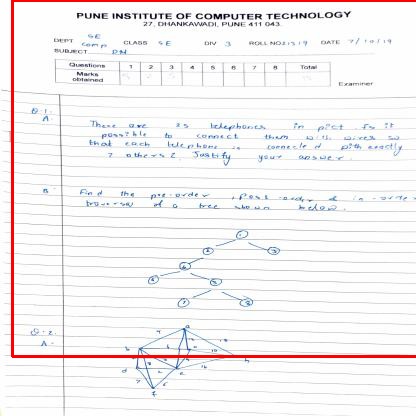 PUNE INSTITUTE OF COMPUTER TECHNOLOGY
27, DHANKAWADI, PUNE 411 043.
DEPT SE Comp CLASS SE DIV 3 ROLL NO DATE 7/10/19
SUBJECT DM
Questions 1 2 3 4 5 6 7 8 Total
Marks obtained
Examiner
Q.1.
A. There are 25 telephones in pict. Is it
possible to connect them with wires so
that each telephone is connected with exactly
7 others? Justify your answer.
B. Find the pre-order, post-order & in-order
traversal of a tree shown below.
Q.2.
A.